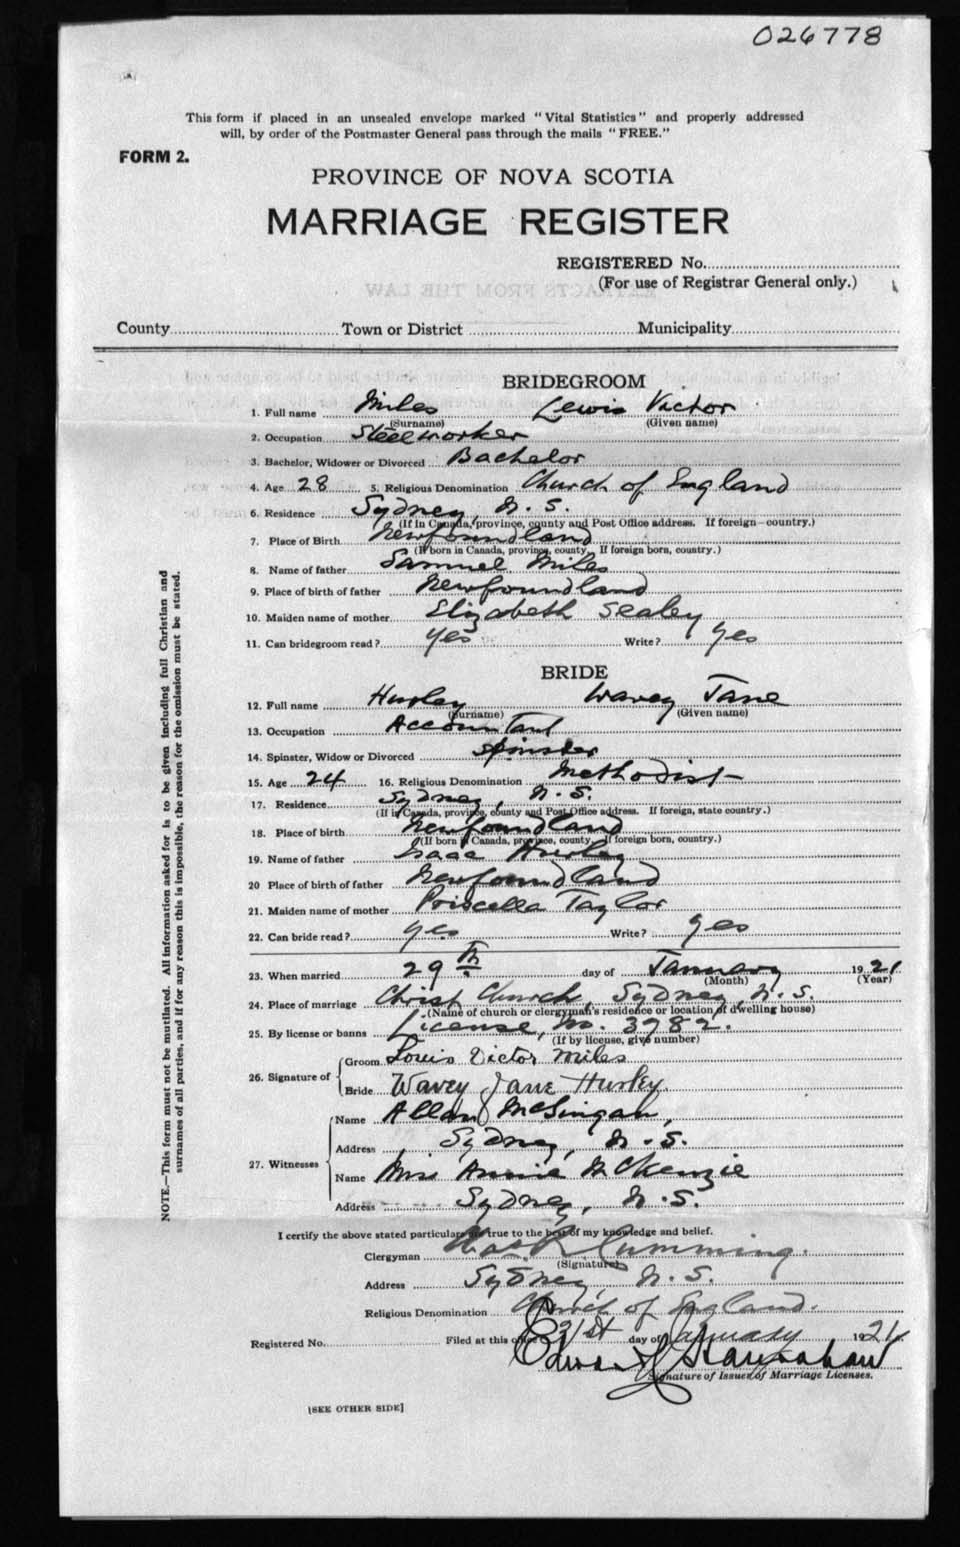 026778
This form if placed in an unsealed envelope marked "Vital Statistics" and properly addressed
will, by order of the Postmaster General pass through the mails "FREE."
FORM 2.
PROVINCE OF NOVA SCOTIA
MARRIAGE REGISTER
REGISTERED No.
(For use of Registrar General only.)
County Town or District Municipality
BRIDEGROOM
1. Full name Miles Lewis Victor
(Surname) (Given name)
2. Occupation Steelworker
3. Bachelor, Widower or Divorced Bachelor
4. Age 28 5. Religious Denomination Church of England
6. Residence Sydney, N.S.
(If in Canada, province, county and Post Office address. If foreign—country.)
7. Place of Birth Newfoundland
(If born in Canada, province, county. If foreign born, country.)
8. Name of father Samuel Miles
9. Place of birth of father Newfoundland
10. Maiden name of mother Elizabeth Sealey
11. Can bridegroom read? Yes Write? Yes
BRIDE
12. Full name Husley Wavey Jane
(Surname) (Given name)
13. Occupation Accountant
14. Spinster, Widow or Divorced Spinster
15. Age 24 16. Religious Denomination Methodist
17. Residence Sydney, N.S.
(If in Canada, province, county and Post Office address. If foreign, state country.)
18. Place of birth Newfoundland
(If born in Canada, province, county. If foreign born, country.)
19. Name of father Isaac Husley
20 Place of birth of father Newfoundland
21. Maiden name of mother Priscella Taylor
22. Can bride read? Yes Write? Yes
23. When married 29th day of January 1921
(Month) (Year)
24. Place of marriage Christ Church, Sydney, N.S.
(Name of church or clergyman's residence or location of dwelling house)
25. By license or banns License, No. 3782.
(If by license, give number)
26. Signature of Groom Louis Victor Miles
Bride Wavey Jane Husley
27. Witnesses Name Allan
Address Sydney, N.S.
Name Miss Annie McKenzie
Address Sydney, N.S.
I certify the above stated particulars are true to the best of my knowledge and belief.
Clergyman Cumming.
(Signature)
Address Sydney, N.S.
Religious Denomination Church of England.
Registered No. Filed at this office 31st day of January 1921
Signature of Issuer of Marriage Licenses.
[SEE OTHER SIDE]
NOTE.—This form must not be mutilated. All information asked for is to be given including full Christian and
surnames of all parties, and if for any reason this is impossible, the reason for the omission must be stated.